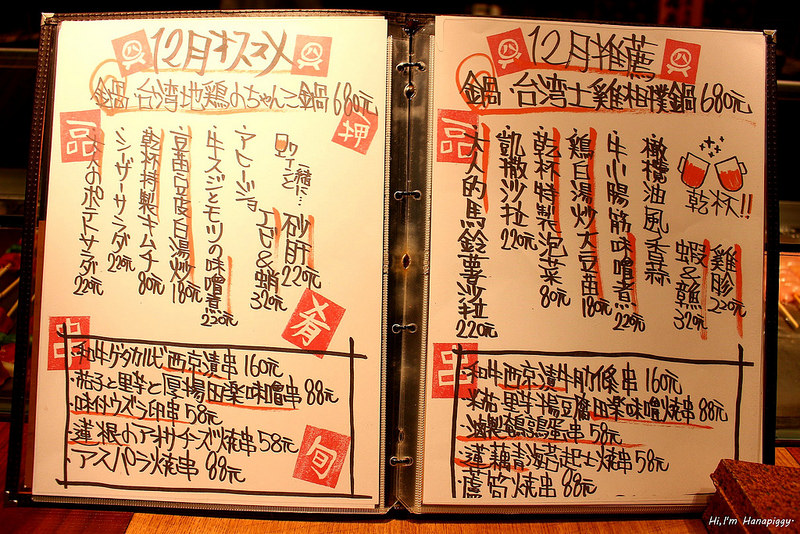 12月オススメ
鍋・台湾地鶏のちゃんこ鍋680元
押
一品
ワインと
一緒に…
砂肝
220元
アヒージョ
エビ&蛸
320元
牛スジとモツの味噌煮
230元
豆苗豆皮白湯炒
180元
乾杯特製キムチ
80元
シーザーサラダ
220元
大人のポテトサラダ
220元
肴
串
・和牛ゲタカルビ西京漬串160元
里芋と厚揚田楽味噌串88元
・味付ウズラ卵串58元
・蓮根のアオサチーズ焼串58元
・アスパラ焼串88元
旬
12月推薦
鍋・台湾土雞相撲鍋680元
一品
乾杯!!
橄欖油風香蒜
雞胗
220元
蝦&鱆
320元
牛小腸筋味噌煮
220元
雞白湯炒大豆苗
180元
乾杯特製泡菜
80元
凱撒沙拉
220元
大人的馬鈴薯沙拉
220元
串
・和牛西京漬牛肋條串160元
里芋揚豆腐田樂味噌燒串88元
鵪鶉蛋串58元
・蓮藕青海苔起士燒串58元
・蘆筍燒串88元
Hi,I'm Hanapiggy.